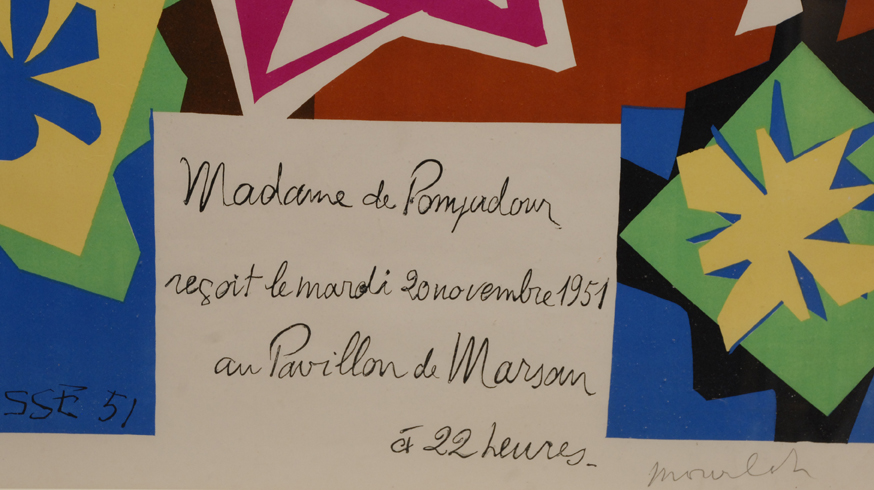 Madame de Pompadour
reçoit le mardi 20 novembre 1951
au Pavillon de Marsan
à 22 heures.
SSE 51
Mourlot